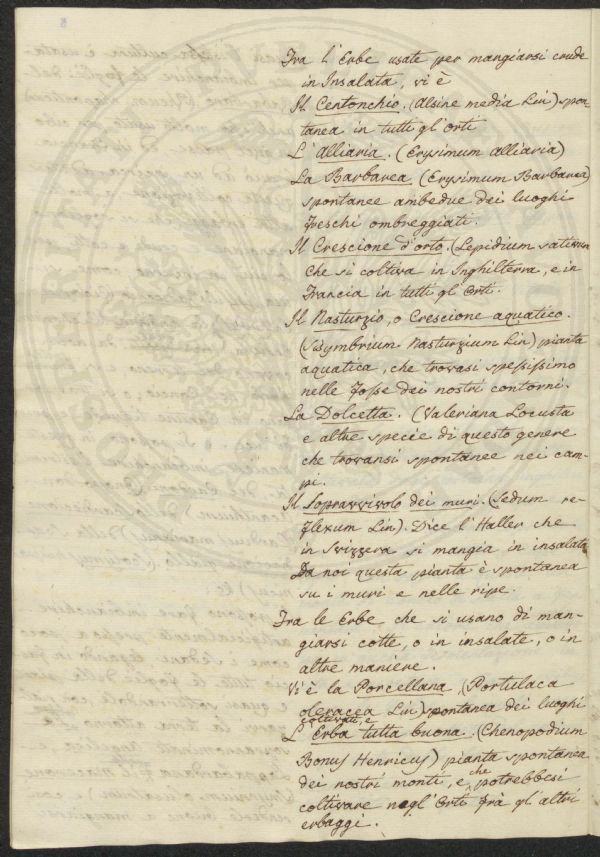 Tra l'Erbe usate per mangiarsi crude
in Insalata, vi è
Il Centonchio. (Alsine media Lin) spon-
tanea in tutti gl'orti
L'Alliaria. (Erysimum alliaria)
La Barbarea (Erysimum Barbarea)
spontanee ambedue dei luoghi
freschi ombreggiati.
Il Crescione d'orto. (Lepidium sativum
che si coltiva in Inghilterra, e in
Francia in tutti gl'Orti.
Il Nasturzio, o Crescione aquatico.
(Sisymbrium Nasturzium Lin) pianta
aquatica, che trovasi spessissimo
nelle fosse dei nostri contorni.
La Dolcetta. (Valeriana Locusta
e altre specie di questo genere
che trovansi spontanee nei cam-
pi.
Il Sopravvivolo dei muri. (Sedum re-
flexum Lin). Dice l'Haller che
in Svizzera si mangia in insalata
Da noi questa pianta è spontanea
su i muri e nelle ripe.
Tra le Erbe che si usano di man-
giarsi cotte, o in insalate, o in
altre maniere.
Vi è la Porcellana, (Portulaca
oleracea Lin) spontanea dei luoghi
coltivati, e
L'Erba tutta buona. (Chenopodium
Bonus Henricus) pianta spontanea
dei nostri monti, e che potrebbesi
coltivare negl'Orti frà gl'altri
erbaggi.